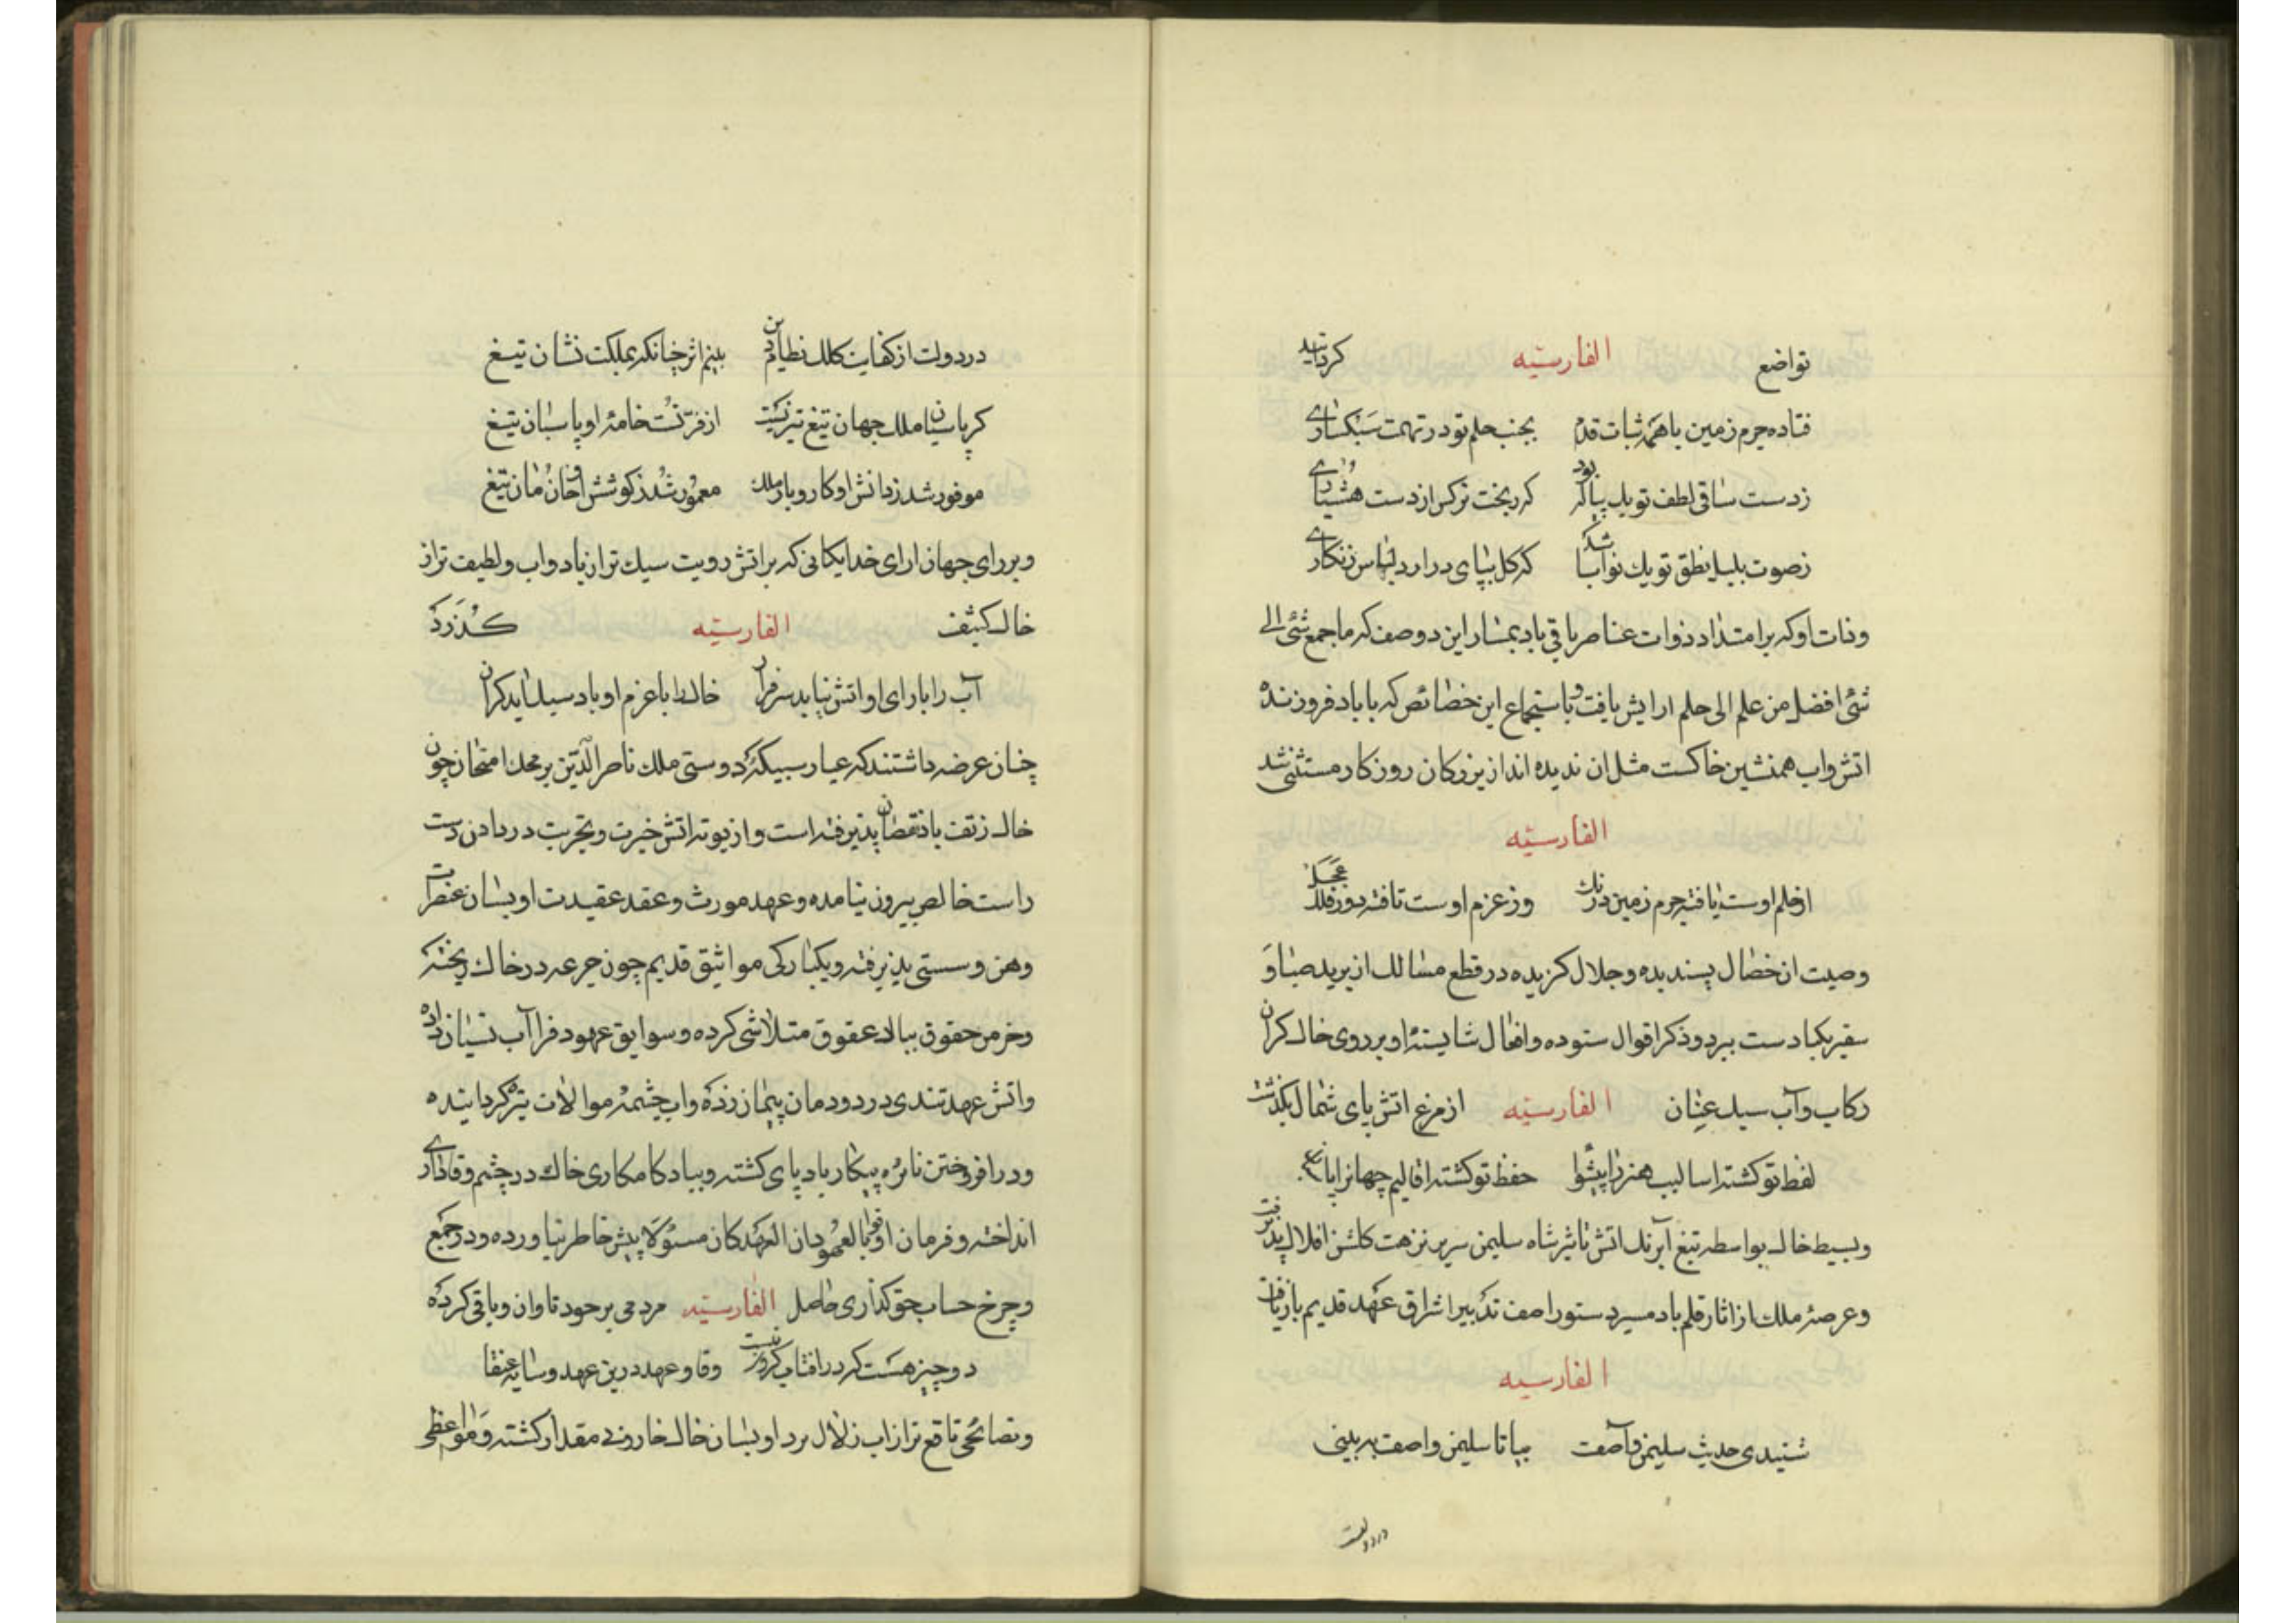 تواضع الفارسیّه کردانید
فتاده جرم زمین با همه ثبات قدم بجنب حلم تو در تهمت سبکساری
زدست ساقی لطف تو یک پیاله بود که ریخت نرکس از دست هشیاری
زصوت بلبل نطق تو یک نوا باشد که کل بپای درارد لباس زنکاری
وذات او که برامتداد ذوات عناصر باقی باد بمسار این دو وصف که ما جمع شئ الی
شئ افضل من علم الی حلم ارایش یافت و باستجماع این خصائص که با باد فروزنده
اتش واب همنشین خاکست مثل ان ندیده اند از بزرکان روزکار مستثنی شد
الفارسیّه
ازحلم اوست یافته جرم زمین درنک وز عزم اوست تافته دور فلک عجل
وصیت ان خصال پسندیده وجلال کزیده در قطع مسالک از برید صبا و
سفیر یکباد ست ببرد وذکر اقوال ستوده وافعال شایسته او بر روی خاک کران
رکاب وآب سبک عنان الفارسیّه از مرغ اتش پای شمال بکذشت
لفظ تو کشته اسالیب هنر را پیشوا حفظ تو کشته اقالیم جهانرا
وبسیط خاک بواسطه تیغ آبرنک اتش تاثیر شاه سلیمن سریر نزهت کلشن افلاک پذیرفت
وعرصهٔ ملک از اثار قلم باد مسیر دستور اصف تدبیر اشراق عهد قدیم بازیافت
الفارسیه
شنیدی حدیث سلیمن وآصف بیا تا سلیمن واصف به بینی
در دولت
در دولت از کفایت کلک نظام دین بینم اثر چنانکه بمملکت نشان تیغ
کر پاسبان ملک جهان تیغ تیز نیست از فر تست خامهٔ او پاسبان تیغ
موفور شد زدانش او کار وبار ملک معمور شد زکوشش او خان ومان تیغ
وبررای جهان ارای خدایکانی که براتش رویت سبک تر از باد واب ولطیف تراز
خاک کثیف الفارسیّه کذرد
آب را با رای او اتش نیاید سرفراز خاک را با عزم او باد سبک آید کران
چنان عرضه داشتند که عیار سبیکهٔ دوستی ملک ناصر الدّین بر محک امتحان چون
خاک زتف باد نقصان پذیرفته است واز بوته اتش خبرت وتجربت در دادن دست
راست خالص بیرون نیامده وعهد مورث وعقد عقیدت او بسان عنصر
وهن وسستی پذیرفته ویکبارکی مواثیق قدیم چون جرعه در خاک ریخته
وخرمن حقوق بباد عقوق متلاشی کرده وسوابق عهود فرا آب نسیان داده
واتش عهد تندی در دودمان پیمان زده واب چشمه موالات تیره کردانیده
ودر افروختن نائره پیکار باد پای کشته وبباد کامکاری خاک در چشم وفاداری
انداخته وفرمان اوفوا بالعهود ان العهد کان مسئولا پیش خاطر نیاورده ودر جمع
وخرج حساب حق کذاری حاصل الفارسیّه مردمی بر خود تاوان وباقی کرده
دو چیز هست که در افتاب کردون نیست وفا وعهد درین عهد وسایه عنقا
ونصائحی نافع تر از اب زلال برد او بسان خاک خار وبی مقدار کشته ومواعظی